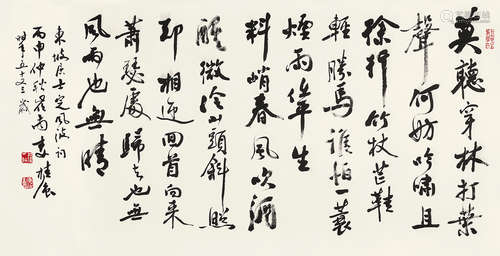 莫聽穿林打葉
聲何妨吟嘯且
徐行竹杖芒鞋
輕勝馬誰怕一蓑
煙雨任平生
料峭春風吹酒
醒微冷山頭斜照
却相迎回首向来
蕭瑟處歸去也無
風雨也無晴
東坡居士定風波詞
丙申仲秋